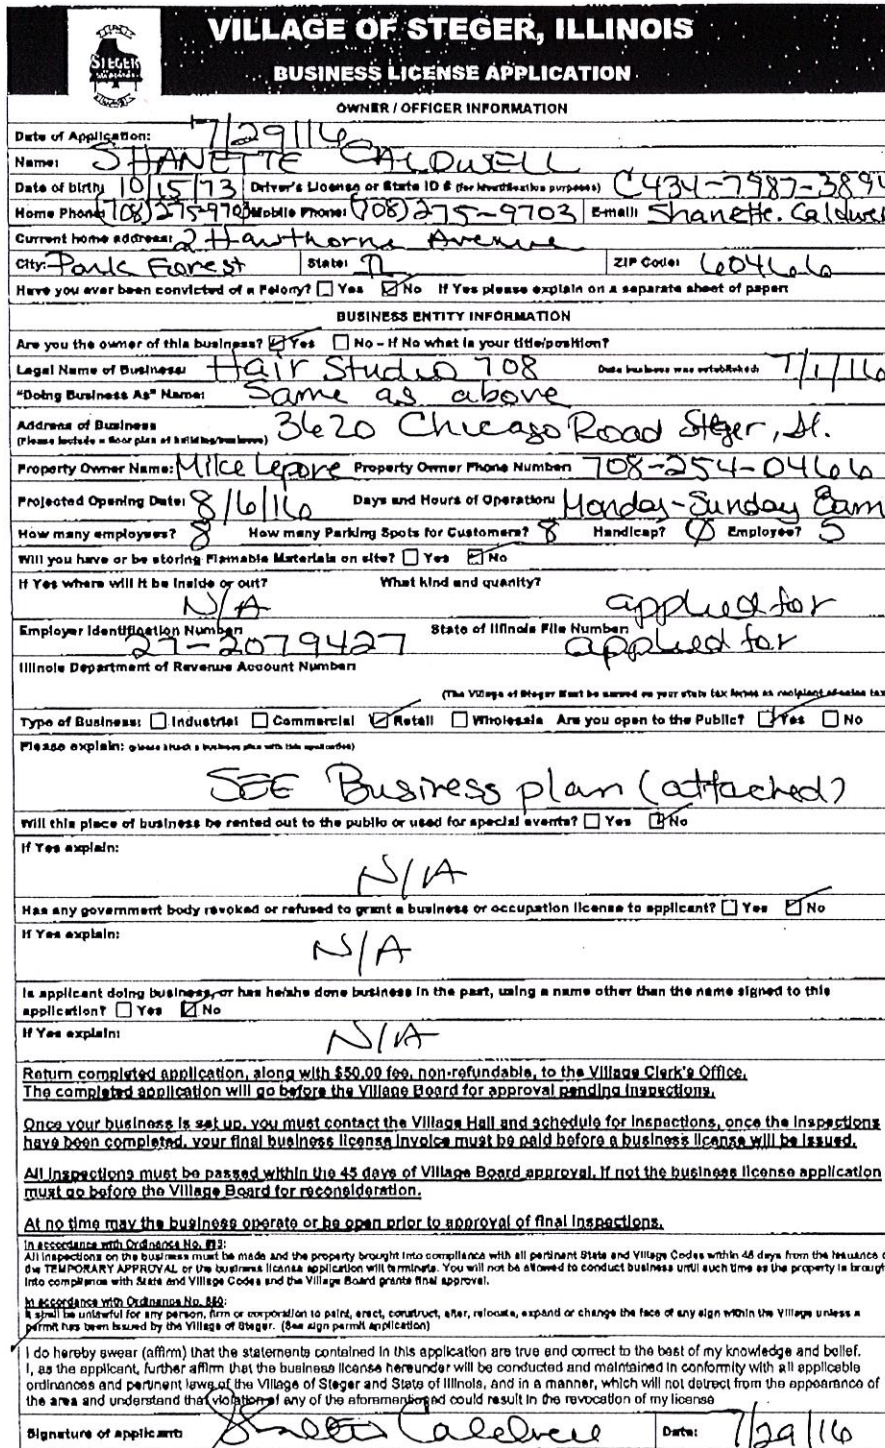 STEGER
VILLAGE OF STEGER, ILLINOIS
BUSINESS LICENSE APPLICATION
OWNER / OFFICER INFORMATION
Date of Application: 7/29/16
Name: SHANETTE CALDWELL
Date of birth: 10/15/73 Driver's License or State ID # (for identification purposes) C434-7987-389
Home Phone: (708)275-9703 Mobile Phone: (708)275-9703 E-mail: Shanette.Caldwel
Current home address: 2 Hawthorne Avenue
City: Park Forest State: IL ZIP Code: 60466
Have you ever been convicted of a Felony? ☐ Yes ☑ No If Yes please explain on a separate sheet of paper:
BUSINESS ENTITY INFORMATION
Are you the owner of this business? ☑ Yes ☐ No – If No what is your title/position?
Legal Name of Business: Hair Studio 708 Date business was established: 7/1/16
"Doing Business As" Name: Same as above
Address of Business 3620 Chicago Road Steger, Il.
(Please include a floor plan of building/business)
Property Owner Name: Mike Lepore Property Owner Phone Number: 708-254-0466
Projected Opening Date: 8/6/16 Days and Hours of Operation: Monday-Sunday 8am
How many employees? 8 How many Parking Spots for Customers? 8 Handicap? 0 Employee? 5
Will you have or be storing Flamable Materials on site? ☐ Yes ☑ No
If Yes where will it be inside or out? What kind and quanity?
N/A applied for
Employer Identification Number 27-2079427 State of Illinois File Number applied for
Illinois Department of Revenue Account Number:
(The Village of Steger Must be named on your state tax forms as recipient of sales tax
Type of Business: ☐ Industrial ☐ Commercial ☑ Retail ☐ Wholesale Are you open to the Public? ☑ Yes ☐ No
Please explain: (please attach a business plan with this application)
SEE Business plan (attached)
Will this place of business be rented out to the public or used for special events? ☐ Yes ☑ No
If Yes explain:
N/A
Has any government body revoked or refused to grant a business or occupation license to applicant? ☐ Yes ☑ No
If Yes explain:
N/A
Is applicant doing business, or has he/she done business in the past, using a name other than the name signed to this
application? ☐ Yes ☑ No
If Yes explain: N/A
Return completed application, along with $50.00 fee, non-refundable, to the Village Clerk's Office.
The completed application will go before the Village Board for approval pending inspections.
Once your business is set up, you must contact the Village Hall and schedule for inspections, once the inspections
have been completed, your final business license invoice must be paid before a business license will be issued.
All inspections must be passed within the 45 days of Village Board approval. If not the business license application
must go before the Village Board for reconsideration.
At no time may the business operate or be open prior to approval of final inspections.
In accordance with Ordinance No.
All inspections on the business must be made and the property brought into compliance with all pertinent State and Village Codes within 45 days from the issuance o
the TEMPORARY APPROVAL or the business license application will terminate. You will not be allowed to conduct business until such time as the property is brough
into compliance with State and Village Codes and the Village Board grants final approval.
In accordance with Ordinance No.
It shall be unlawful for any person, firm or corporation to paint, erect, construct, alter, relocate, expand or change the face of any sign within the Village unless a
permit has been issued by the Village of Steger. (See sign permit application)
I do hereby swear (affirm) that the statements contained in this application are true and correct to the best of my knowledge and belief.
I, as the applicant, further affirm that the business license hereunder will be conducted and maintained in conformity with all applicable
ordinances and pertinent laws of the Village of Steger and State of Illinois, and in a manner, which will not detract from the appearance of
the area and understand that violation of any of the aforementioned could result in the revocation of my license
Signature of applicant: Shanette Caldwell Date: 7/29/16